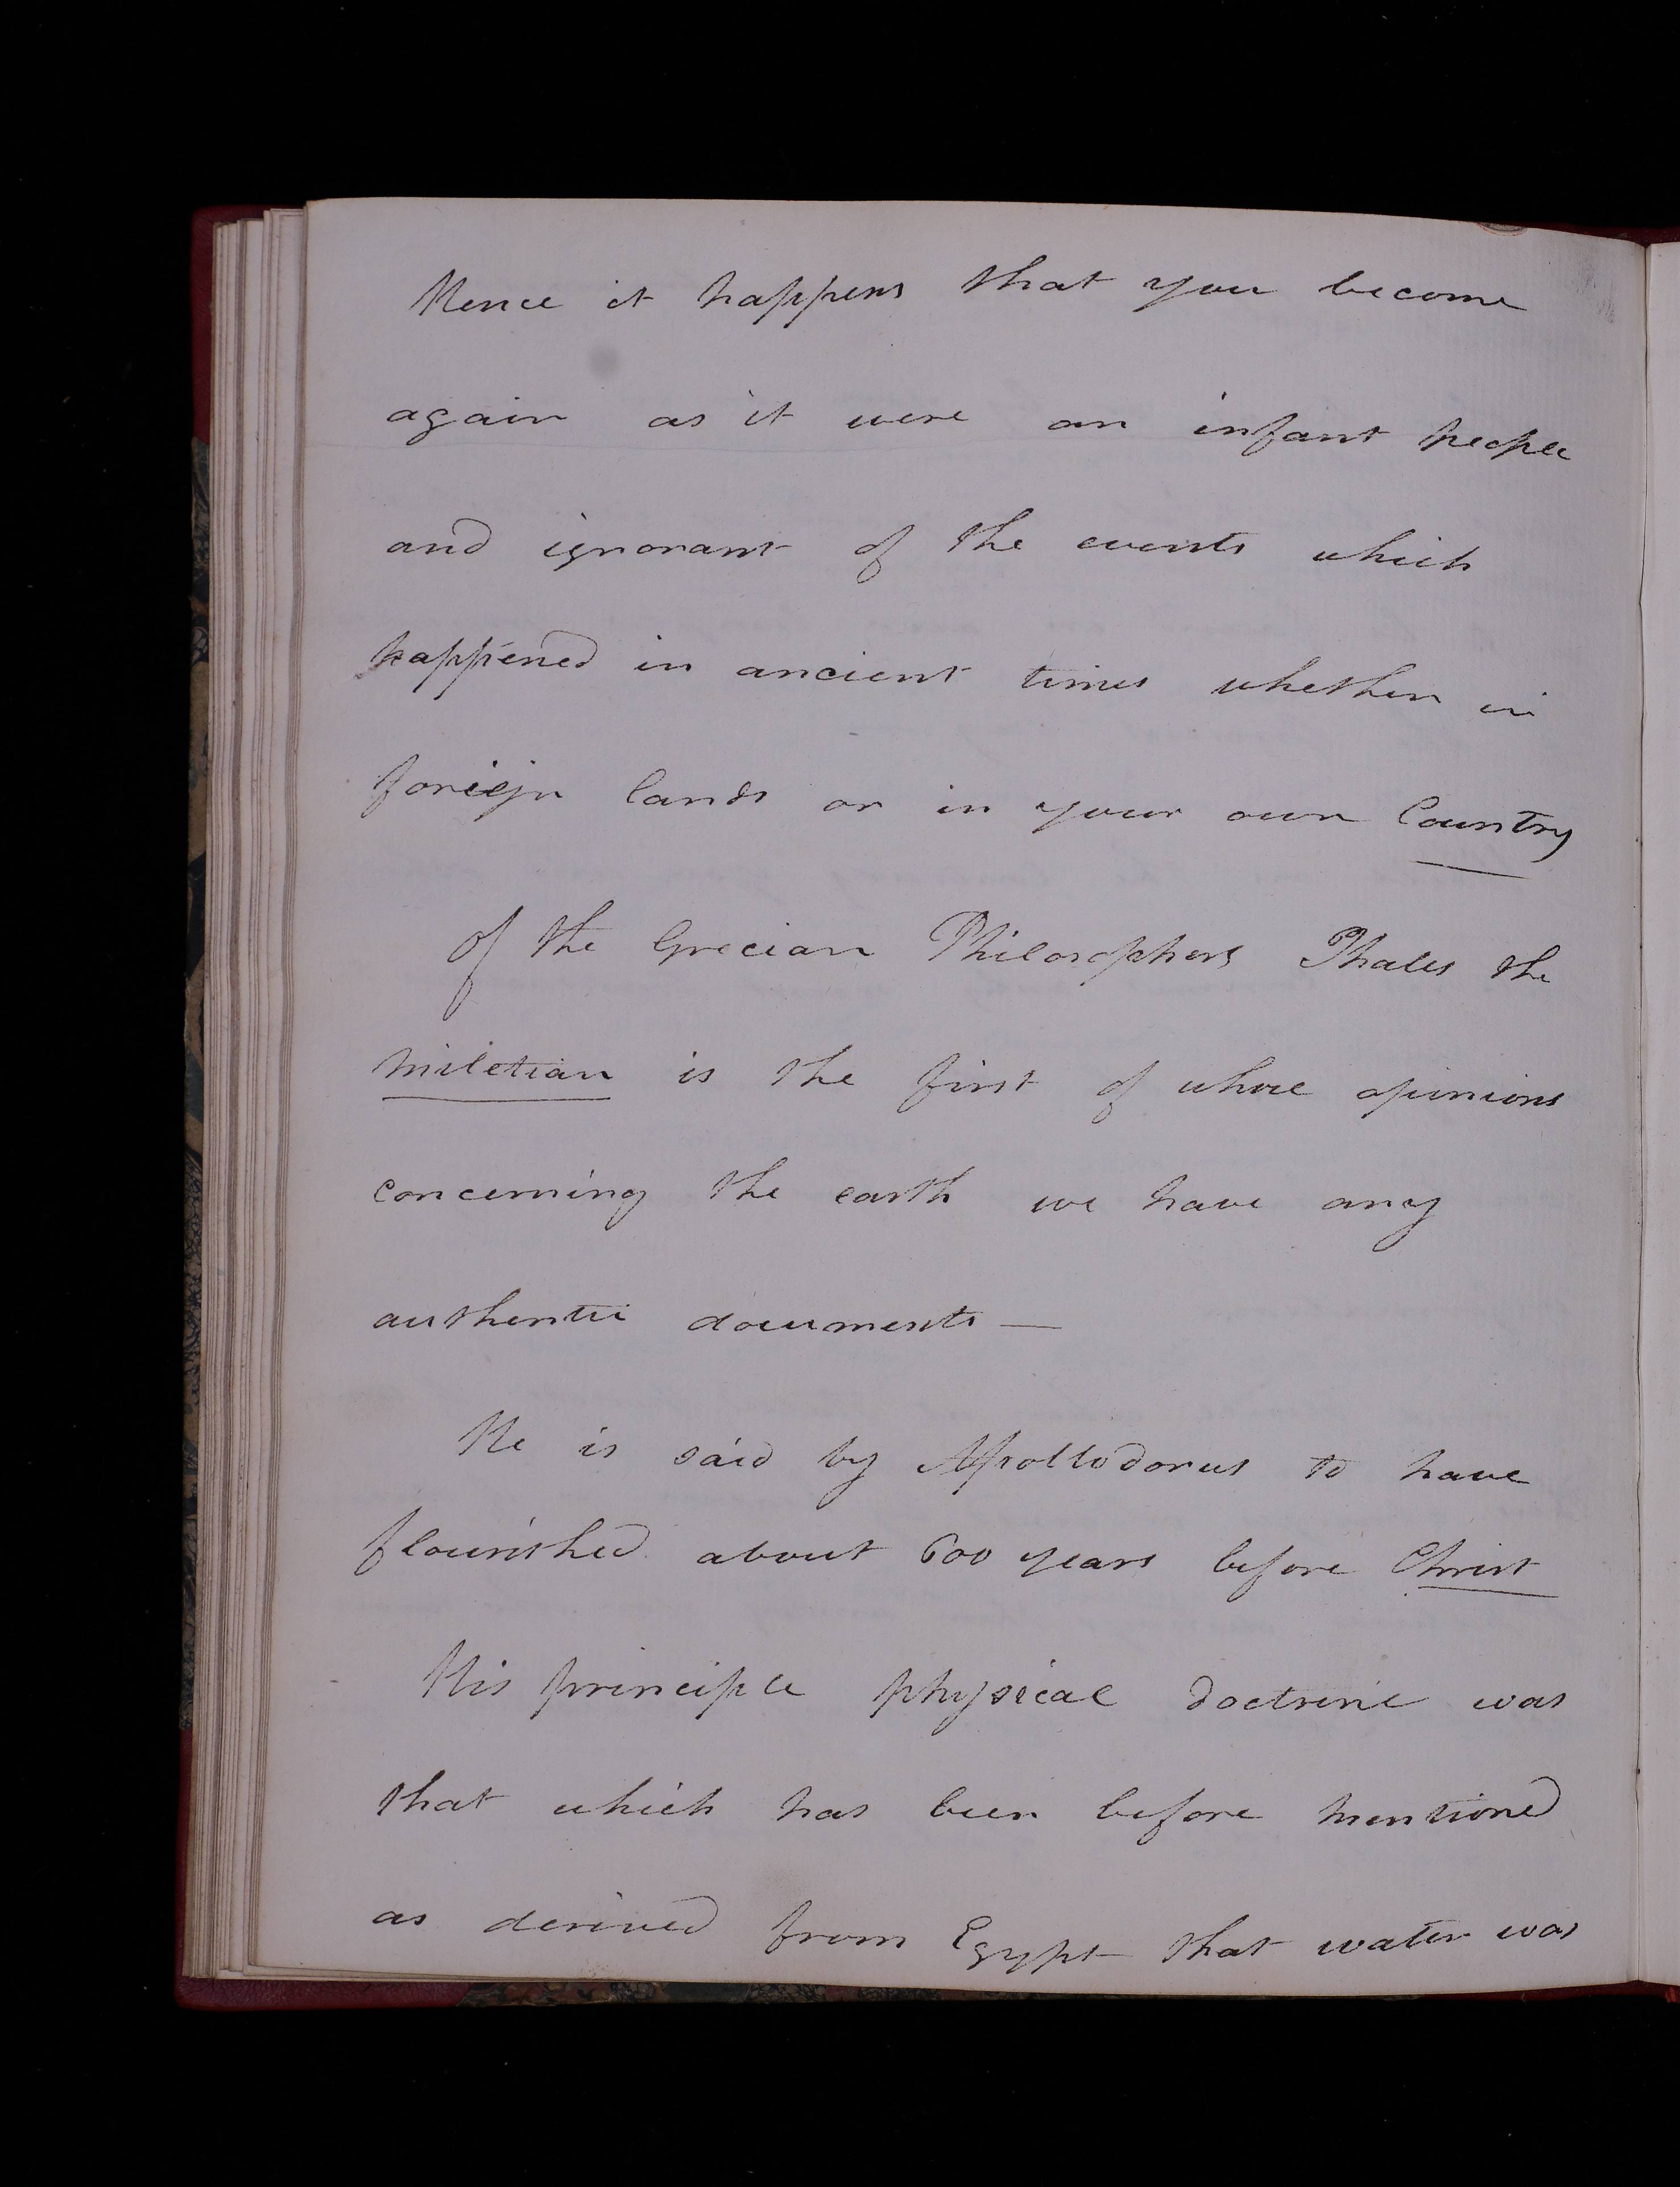 Hence it happens that you become
again as it were an infant people
and ignorant of the events which
happened in ancient times whether in
foreign lands or in your own Country
Of the Grecian Philosophers Thales the
Miletian is the first of whose opinions
concerning the earth we have any
authentic documents —
He is said by Apollodorus to have
flourished about 600 years before Christ
His principle physical doctrine was
that which has been before mentioned
as derived from Egypt that water was